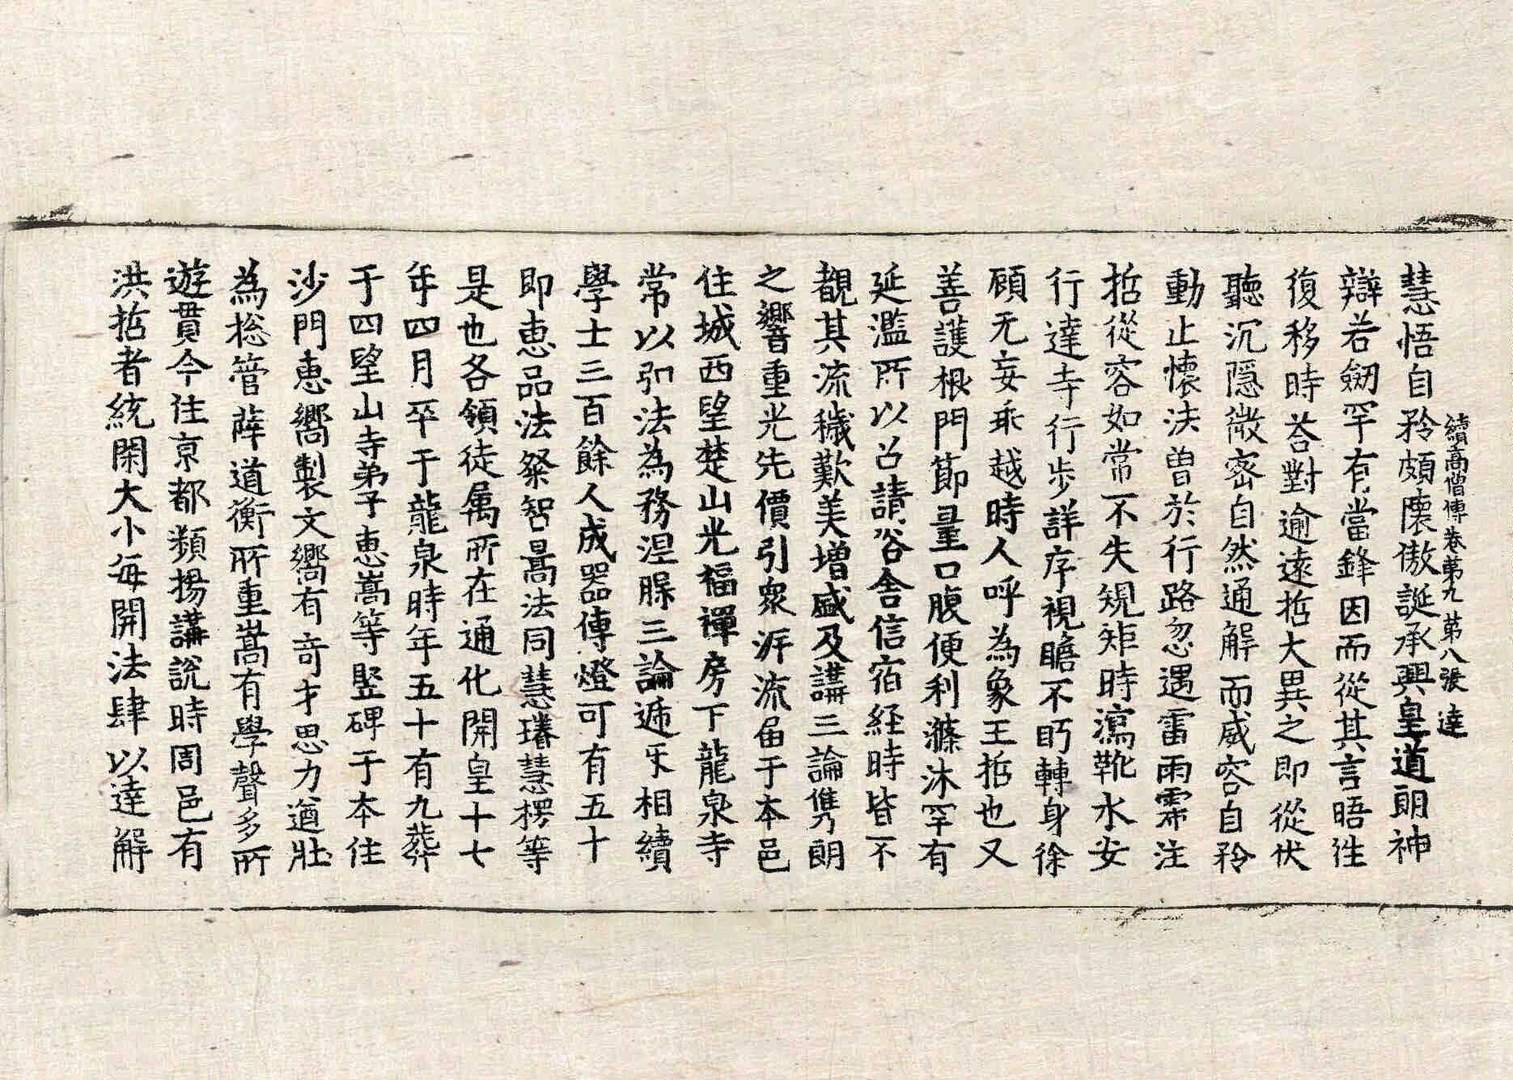 續高僧傳卷第九 第八張 達
慧悟自矜頗懷傲誕承興皇道朗神
辯若劒罕有當鋒因而從其言晤往
復移時荅對逾遠哲大異之即從伏
聽沉隱微密自然通解而威容自矜
動止懷法曽於行路忽遇雷雨霈注
哲從容如常不失規矩時瀉靴水安
行達寺行步詳序視瞻不眄轉身徐
顧无妄乖越時人呼為象王哲也又
善護根門節量口腹便利滌沐罕有
延濫所以召請俗舍信宿経時皆不
覩其流穢歎美增盛及講三論雋朗
之響重光先價引衆泝流届于本邑
住城西望楚山光福禪房下龍泉寺
常以弘法為務涅脵三論遞互相續
學士三百餘人成器傳燈可有五十
即恵品法粲智暠法同慧璿慧楞等
是也各領徒属所在通化開皇十七
年四月卒于龍泉時年五十有九葬
于四望山寺弟子恵嵩等竪碑于本住
沙門恵嚮製文嚮有奇才思力遒壯
為捴管薛道衡所重嵩有學聲多所
遊貫今住京都頻揚講説時周邑有
洪哲者統閑大小每開法肆以達解